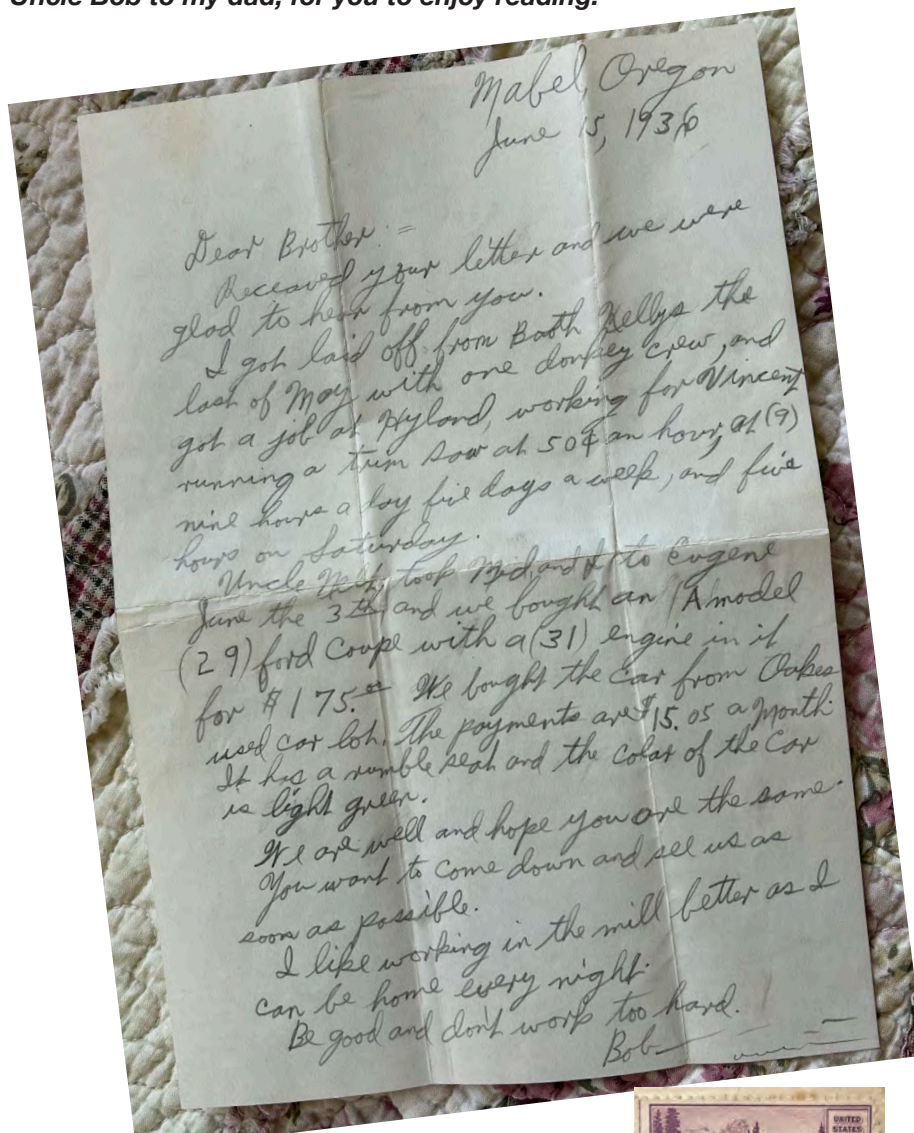 Uncle Bob to my dad, for you to enjoy reading.
Mabel, Oregon
June 15, 1936
Dear Brother :=
Receaved your letter and we were
glad to hear from you.
I got laid off from Booth Kellys the
last of May with one donkey crew, and
got a job at Hyland, working for Vincent
running a trim saw at 50¢ an hour, at (9)
nine hours a day five days a week, and five
hours on Saturday.
Uncle took Mid, and I to Eugene
June the 3th and we bought an A model
(29) ford Coupe with a (31) engine in it
for $175.00 We bought the car from Oakes
used car lot. The payments are $15.05 a Month.
It has a rumble seat and the color of the Car
is light green.
We are well and hope you are the same.
You want to come down and see us as
soon as possible.
I like working in the mill better as I
can be home every night.
Be good and don't work too hard.
Bob
UNITED
STATES